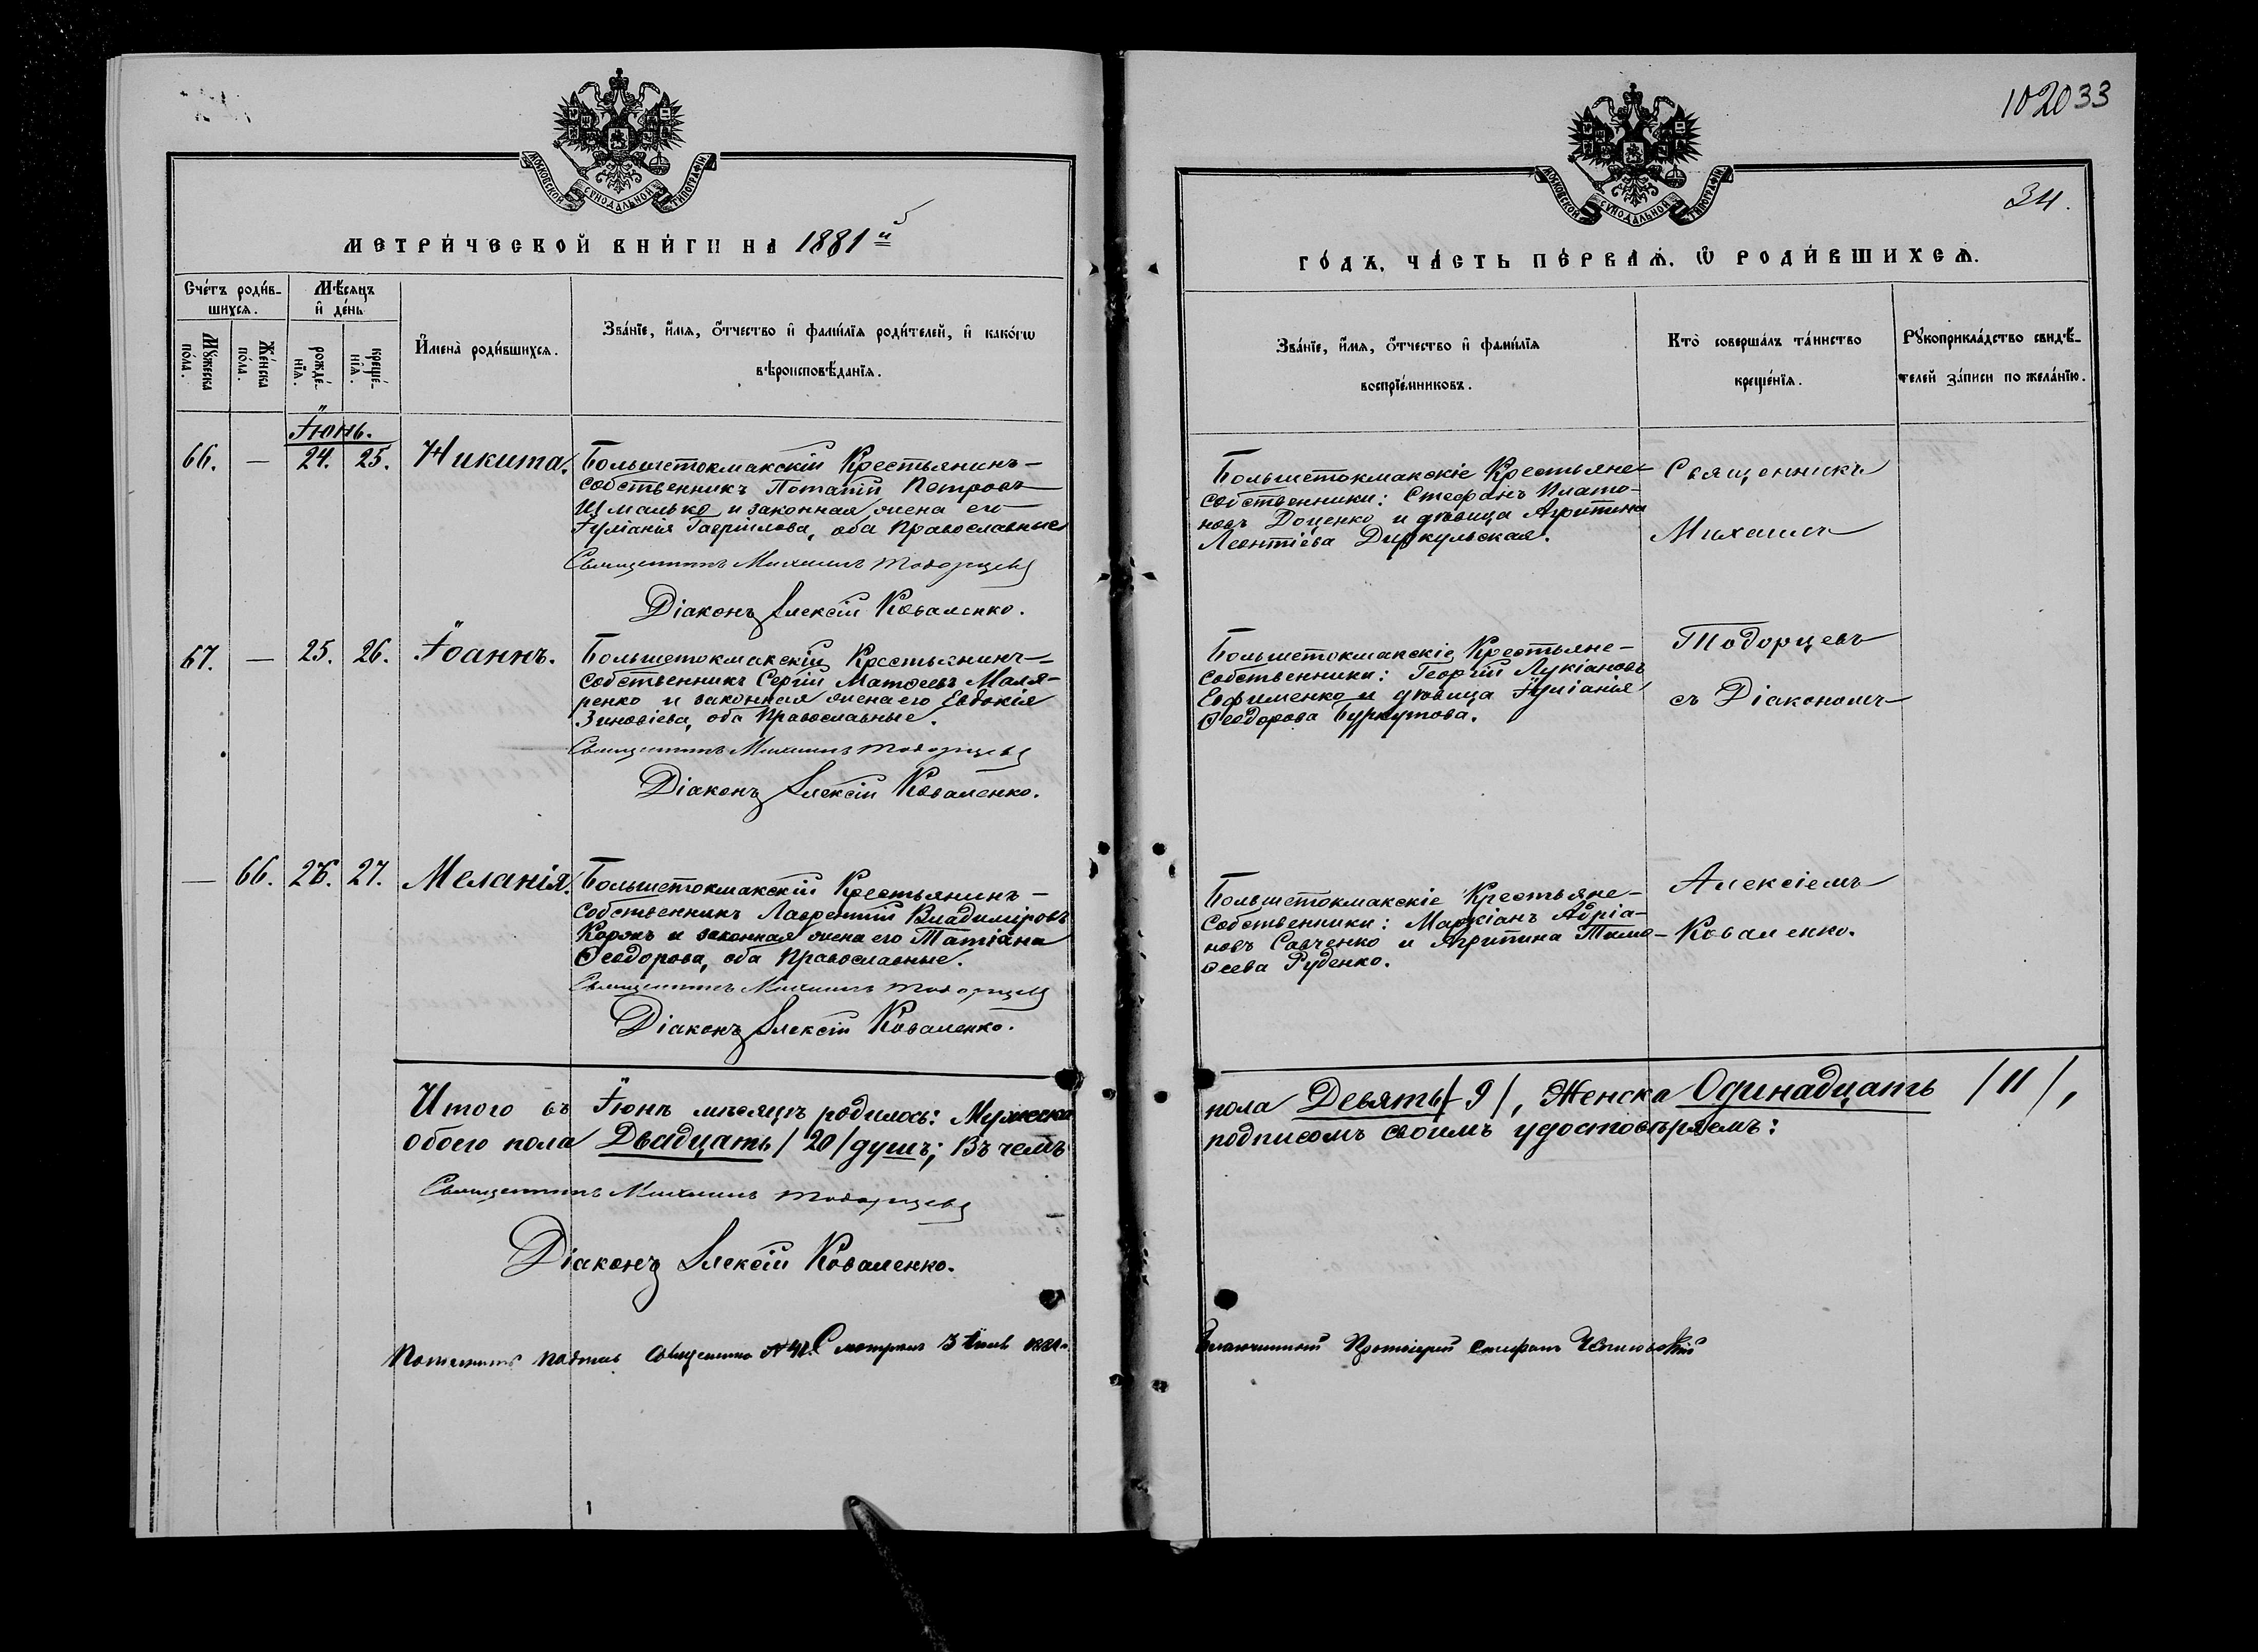 102033
МОСКОВСКОЙ СѴНОДАЛЬНОЙ ТИПОГРАФІИ
МОСКОВСКОЙ СѴНОДАЛЬНОЙ ТИПОГРАФІИ
34.
МЕТРИ́ЧЕСКОЙ КНИ́ГИ НА 1881й
ГО́ДЪ, ЧА́СТЬ ПЕ́РВАѦ, Ѡ҆ РОДИ́ВШИХСѦ.
Сче́тъ роди́в-
шихсѧ.
Мꙋ́жеска
по́ла.
Же́нска
по́ла.
Мѣ́сѧцъ
и҆ де́нь
рожде́-
нїѧ.
креще́-
нїѧ.
И҆мена̀ роди́вшихсѧ.
Зва́нїе, и҆́мѧ, ѻ҆́тчество и҆ фами́лїѧ роди́телей, и҆ како́гѡ
вѣроисповѣ́данїѧ.
Зва́нїе, и҆́мѧ, ѻ҆́тчество и҆ фами́лїѧ
воспрїе́мниковъ.
Кто̀ соверша́лъ та́инство
креще́нїѧ.
Рꙋкоприкла́дство свидѣ́-
телей за́писи по жела́нїю.
Іюнь.
66. — 24. 25. Никита.
Большетокмакскій Крестьянинъ-
собственникъ Потапій Петровъ
Шмалько и законная жена его
Іуліанія Гавріилова, оба Православные
Священникъ Михаилъ Тодорцевъ
Діаконъ Алексій Коваленко.
Большетокмакскіе Крестьяне-
собственники: Стефанъ Плато-
новъ Доценко и дѣвица Агрипина
Леонтіева Диркульская.
Священникъ
Михаилъ
67. — 25. 26. Іоаннъ.
Большетокмакскій Крестьянинъ-
собственникъ Сергій Матѳеевъ Маля-
ренко и законная жена его Евдокія
Зиновіева, оба Православные.
Священникъ Михаилъ Тодорцевъ
Діаконъ Алексій Коваленко.
Большетокмакскіе Крестьяне-
собственники: Георгій Лукіановъ
Евфименко и дѣвица Іуліанія
Ѳеодорова Буркутова.
Тодорцевъ
съ Діакономъ
— 66. 26. 27. Меланія.
Большетокмакскій Крестьянинъ-
собственникъ Лаврентій Владиміровъ
и законная жена его Татіана
Ѳеодорова, оба Православные.
Священникъ Михаилъ Тодорцевъ
Діаконъ Алексій Коваленко.
Большетокмакскіе Крестьяне-
собственники: Маркіанъ Адріа-
новъ Савченко и Агрипина Тимо-
ѳеева Руденко.
Алексіемъ
Коваленко.
Итого въ Іюнѣ мѣсяцѣ родилось: Мужеска
пола Девять /9/, Женска Одинадцать /11/,
обоего пола Двадцать /20/ душъ; Въ чемъ
подписомъ своимъ удостовѣряемъ:
Священникъ Михаилъ Тодорцевъ
Діаконъ Алексій Коваленко.
Смотрѣлъ 3
Благочинный Протоіерей Стефанъ